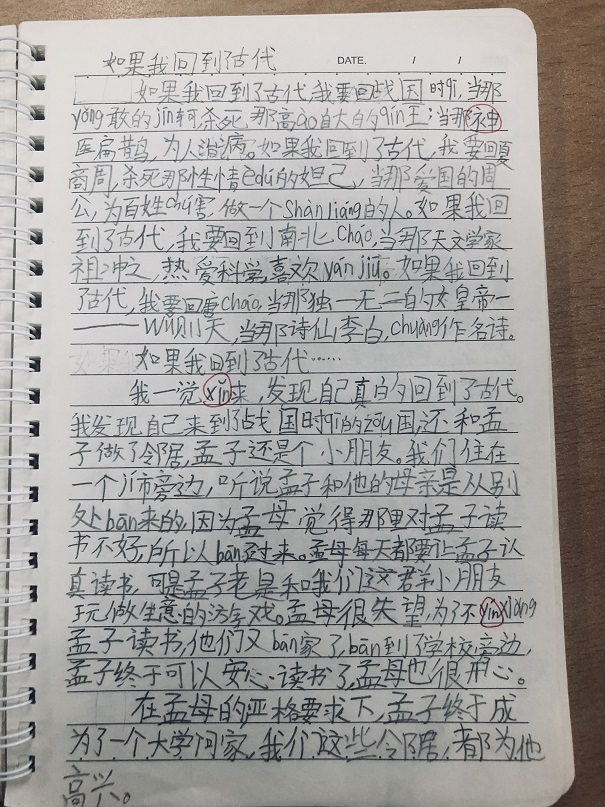 如果我回到了古代 DATE. / /
如果我回到了古代,我要回战国时qī,当那
yǒng敢的jīn轲杀死那高ào自大的qín王;当那神
医扁鹊,为人治病。如果我回到了古代,我要回夏
商周,杀死那性情è dú的妲己,当那爱国的周
公,为百姓chú害,做一个shàn liáng的人。如果我回
到了古代,我要回到南北cháo,当那天文学家
祖冲之,热爱科学,喜欢yán jiū。如果我回到
了古代,我要回唐cháo,当那独一无二的女皇帝一
——Wǔ则天,当那诗仙李白,chuàng作名诗。
如果我回到了古代……
我一觉xǐn来,发现自己真的回到了古代。
我发现自己来到了战国时qī的zōu国,还和孟
子做了邻居,孟子还是个小朋友。我们住在
一个jí市旁边,听说孟子和他的母亲是从别
处bān来的,因为孟母觉得那里对孟子读
书不好,所以bān过来。孟母每天都要让孟子认
真读书,可是孟子老是和我们这群小朋友
玩做生意的游戏。孟母很失望,为了不yínxiǎng
孟子读书,他们又bān家了,bān到了学校旁边,
孟子终于可以安心读书了,孟母也很开心。
在孟母的严格要求下,孟子终于成
为了一个大学问家,我们这些邻居,都为他
高兴。